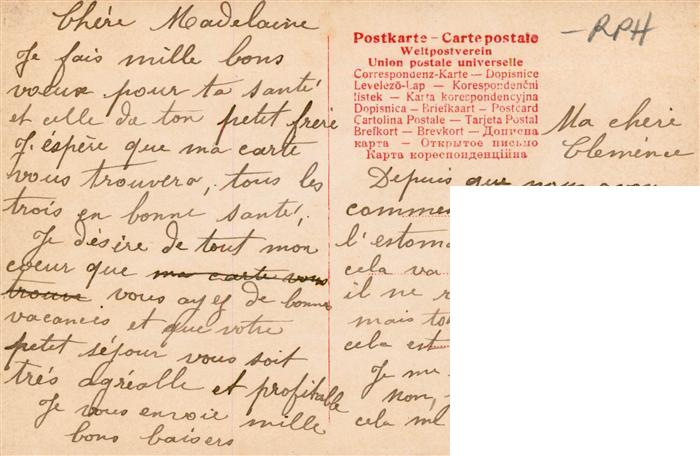 Chére Madelaine
Je fais mille bons
voeux pour ta santé
et celle de ton petit frére
J'éspère que ma carte
vous trouvera, tous les
trois en bonne santé,
Je désire de tout mon
coeur que ma carte vous
trouve vous ayez de bonnes
vacances et que votre
petit séjour vous soit
trés agréable et profitable
Je vous envoie mille
bons baisers
Postkarte – Carte postale
Weltpostverein
Union postale universelle
Correspondenz-Karte – Dopisnice
Levelező-Lap – Korespondenční
listek – Karta korespondencyjna
Dopisnica – Briefkaart – Postcard
Cartolina Postale – Tarjeta Postal
Brefkort – Brevkort – Дописна
карта – Открытое письмо
Карта кореспонденційна
RPH
Ma chére
Cleménce
Depuis que nous
comme
l'estoma
cela va
il ne
mais
cela est
Je me
non,
cela me